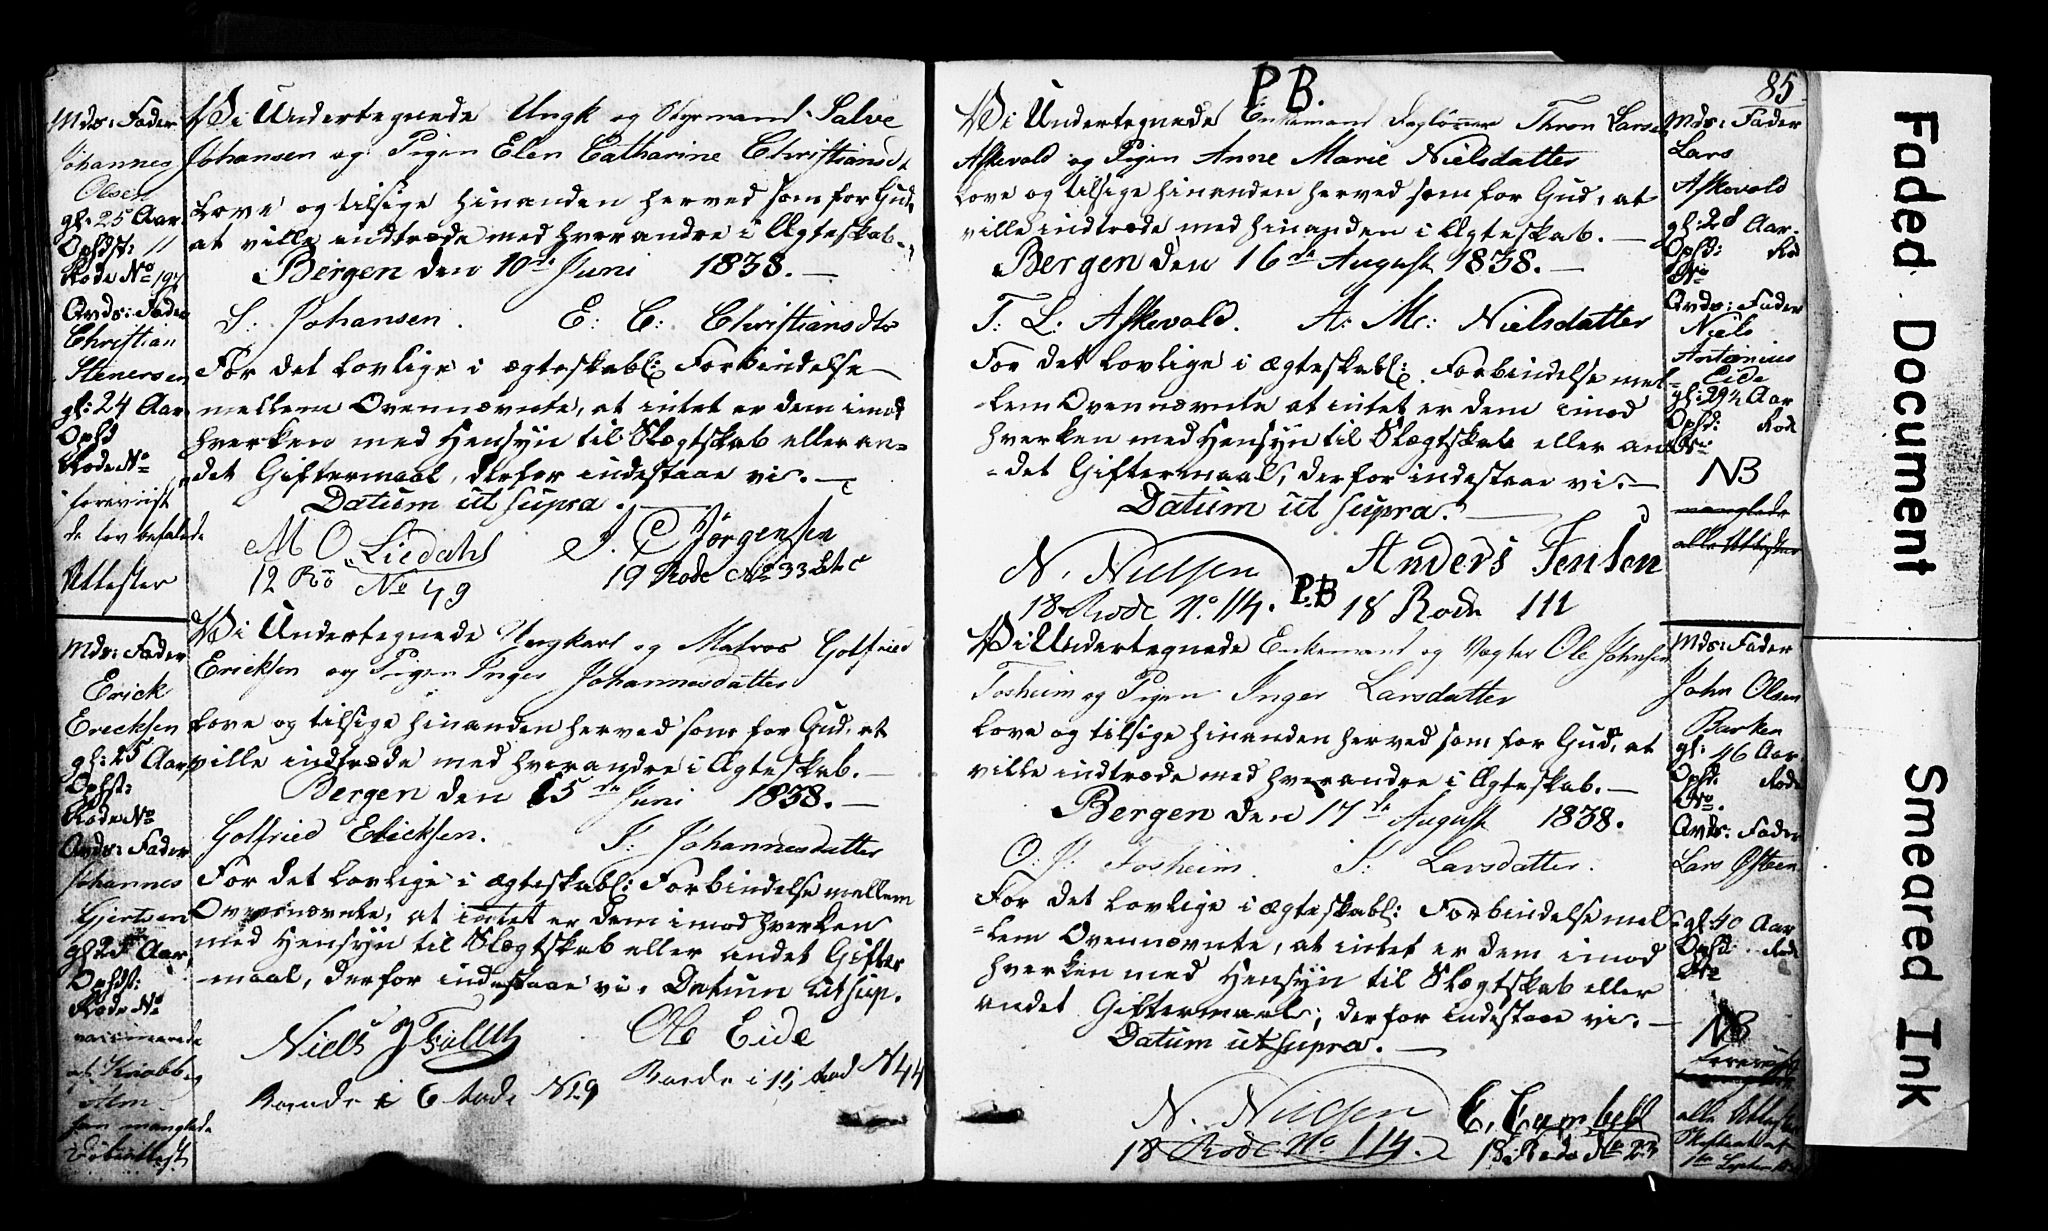 Mds: Fader
Johannes
Olsen
gl: 25 Aar
Ophdst: 11
Rode No 197
Brds: Fader
Christian
Stenersen
gl: 24 Aar
Ophd
Rode No
foreviist
de lovbefalede
Attester
Vi Undertegnede Ungk og Styrmand Salve
Johansen og Pigen Elen Catharine Christiansdt
Love og tilsige hinanden herved som for Gud,
at ville indtræde med hverandre i Ægteskab.
Bergen den 10de Juni 1838.
S: Johansen. E: C: Christiansdtr
For det Lovlige i ægteskabl: Forbindelse
mellem Ovennævnte, at intet er dem imod
hverken med Hensyn til Slægtskab eller an=
det Giftermaal, derfor indestaae vi.
Datum ut supra.
M O Liedahl J. C Jörgensen
12 Ro No 49 19 Rode No 33 Lit c
Mds: Fader
Erick
Ericksen
gl: 25 Aar
Ophst:
Rode No
Brds: Fader
Johannes
Gjertsen
gl: 25 Aar
Ophdst:
Rode No
vaccinerede
af Knobbe
Alm.
han manglede
Døbeattest
Vi Undertegnede Ungkarl og Matros Gotfried
Ericksen og Pigen Inger Johannesdatter
Love og tilsige hinanden herved som for Gud, at
ville indtræde med hverandre i Ægteskab.
Bergen den 15de Juni 1838.
Gotfried Ericksen. I: Johannesdatter
For det Lovlige i ægteskabl: Forbindelse mellem
Ovennævnte, at intet er dem imod hverken
med Hensyn til Slægtskab eller andet Gifter
maal, derfor indestaae vi. Datum ut sup.
Niels J Ole Eide
Boende i 6 Rode N 19 Boende i 15 Rod N 44
P.B.
85
Vi Undertegnede Enkemand Daglønner Thron Larsen
Askevold og Pigen Anne Marie Nielsdatter
Love og tilsige hinanden herved som for Gud, at
ville indtræde med hinanden i Ægteskab.
Bergen den 16de August 1838.
T: L: Askevold. A: M: Nielsdatter
For det Lovlige i ægteskabl: Forbindelse mel=
=lem Ovennævnte at intet er dem imod
hverken med Hensyn til Slægtskab eller an
=det Giftermaal, derfor indestaae vi.
Datum ut supra.
N. Nielsen Anders Jensen
18 Rode No 114. 18 Rode 111
Mds: Fader
Lars
Askevold
gl: 28 Aar.
Ophd: Rod
No
Brds: Fader
Niels
Antonius
Eide
gl: 29½ Aar
Ophd: Rod
No:
NB
manglede
alle Attester
P.B
Vi Undertegnede Enkemand og Vægter Ole Johnsen
Tosheim og Pigen Inger Larsdatter
Love og tilsige hinanden herved som for Gud, at
ville indtræde med hverandre i Ægteskab.
Bergen den 17de August 1838.
O: J: Tosheim. I: Larsdatter.
For det Lovlige i ægteskabl: Forbindelse mel
=lem Ovennævnte, at intet er dem imod
hverken med Hensyn til Slægtskab eller
andet Giftermaal, derfor indestaae vi.
Datum ut supra.
N. Nielsen C. Cambell
18 Rode No 114. 18 Rode No 23
Mds: Fader
John Olsen
gl: 46 Aar
Ophd: Rode
No.
Brds: Fader
Lars Østeen
gl: 40 Aar
Ophd: Rod
No
NB
foreviist
manglede
alle Attester
Faded Document
Smeared Ink